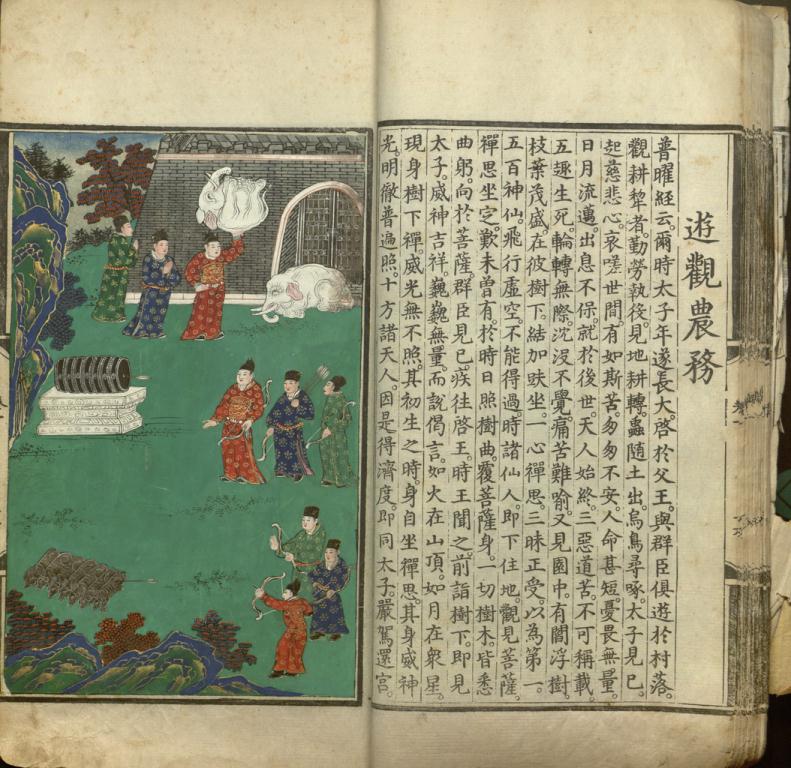 遊觀農務
普曜經云。爾時太子年遂長大。啓於父王。與群臣俱遊於村落。
觀耕犂者。勤勞執役。見地耕轉。蟲隨土出。烏鳥尋啄。太子見已。
起慈悲心。哀嗟世間。有如斯苦。匆匆不安。人命甚短。憂畏無量。
日月流邁。出息不保。就於後世。天人始終。三惡道苦。不可稱載。
五趣生死。輪轉無際。沉沒不覺。痛苦難喻。又見園中。有閻浮樹。
枝葉茂盛。在彼樹下。結加趺坐。一心禪思。三昧正受。以為第一。
五百神仙。飛行虛空。不能得過。時諸仙人。即下住地。觀見菩薩。
禪思坐定。歎未曾有。於時日照樹曲。覆菩薩身。一切樹木。皆悉
曲躬。向於菩薩。群臣見已。疾往啓王。時王聞之。前詣樹下。即見
太子。威神吉祥。巍巍無量。而說偈言。如火在山頂。如月在衆星。
現身樹下禪。威光無不照。其初生之時。身自坐禪思。其身威神
光。明徹普遍照。十方諸天人。因是得濟度。即同太子。嚴駕還宮。